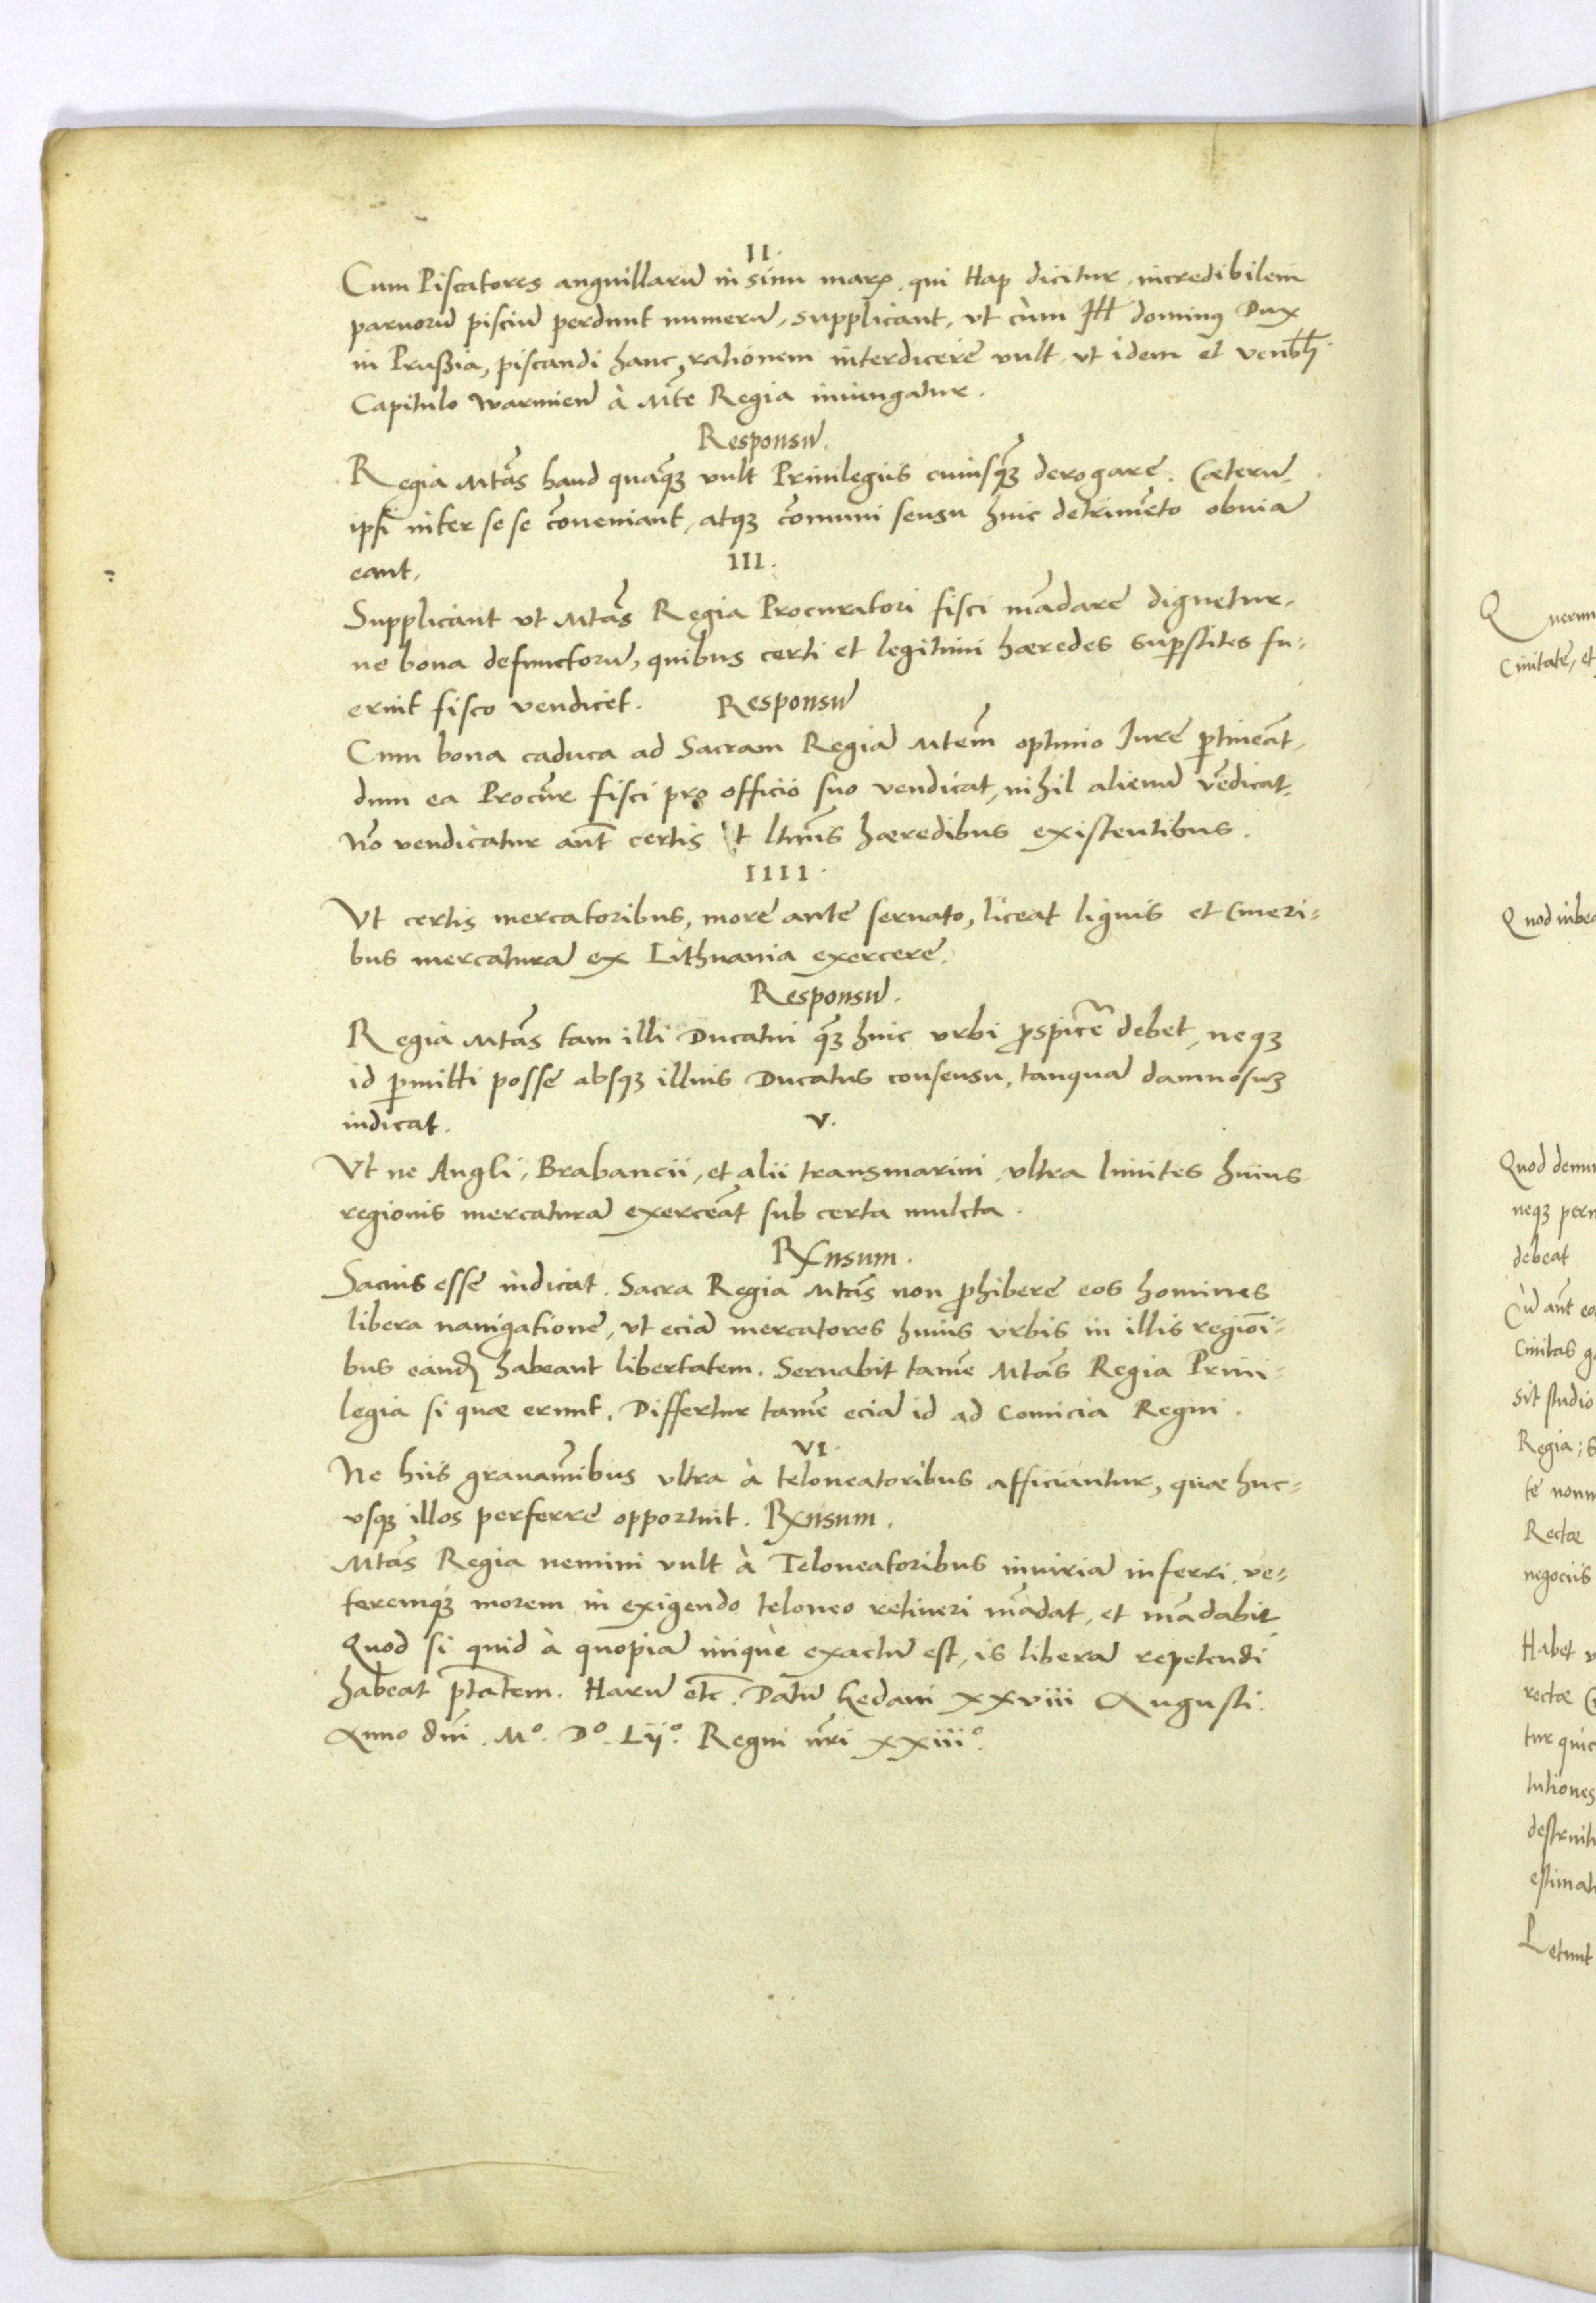 II.
Cum Piscatores anguillarū in sinu marꝭ, qui Hap dicitur, incredibilem
paruorū pisciū perdunt numerū, supplicant, vt cùm Ill dominꝰ Dux
in Prussia, piscandi hanc rationem interdicere vult, vt idem et venblī
Capitulo Warmien̄ à Mte Regia iniungatur.
Responsū.
Regia Mtās haud quaꝗꝫ vult Priuilegiis cuiusꝗꝫ derogare. Cæterū
ipsi inter se se cōueniant, atqꝫ cōmuni sensu huic detrimēto obuiā
eant.
III.
Supplicant vt Mtās Regia Procuratori fisci mādare dignetur,
ne bona defunctorū, quibus certi et legitimi hæredes suꝑstites fu-
erint fisco vendicet. Responsū
Cum bona caduca ad Sacram Regiā Mtem̄ optimo Iure ꝑtineāt,
dum ea Procur̄ fisci pro officio suo vendicat, nihil alienū vēdicat.
Nō vendicatur aūt certis et ltimīs hæredibus existentibus.
IIII.
Vt certis mercatoribus, more ante seruato, liceat lignis et Cineri-
bus mercaturā ex Lithuania exercere.
Responsū.
Regia Mtās tam illi Ducatui ꝗꝫ huic vrbi ꝓspicē debet, neqꝫ
id ꝑmitti posse absqꝫ illius Ducatus consensu, tanquā damnosuꝫ
iudicat.
V.
Vt ne Angli, Brabancii, et alii transmarini, vltra limites huius
regionis mercaturā exerceāt sub certa mulcta.
Rxnsum.
Sacius esse iudicat. Sacra Regia Mtās non ꝓhibere eos homines
libera nauigatione, vt eciā mercatores huius vrbis in illis regiōi-
bus eandꝫ habeant libertatem. Seruabit tamē Mtās Regia Priui-
legia si quæ erunt. Differtur tamē eciā id ad Comicia Regni.
VI.
Ne hiis grauam̄ibus vltra à teloneatoribus afficiantur, quæ huc-
vsqꝫ illos perferre opportuit. Rxnsum.
Mtās Regia nemini vult à Teloneatoribus iniuriā inferri, ve-
teremqꝫ morem in exigendo teloneo retineri mādat, et mādabit
Quod si quid à quopiā inique exactū est, is liberā repetendi
habeat ptatem. Harū etc. Datū Gedani XXVIII Augusti.
Anno dn̄i. M°. D°. Lij°. Regni nr̄i XXIII°.